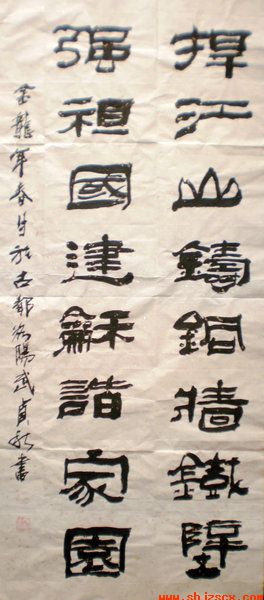 捍江山鑄銅牆鐵壁
强祖國建龢諧家園
金龍年春月於古都洛陽武貞書
www.shjzscx.com